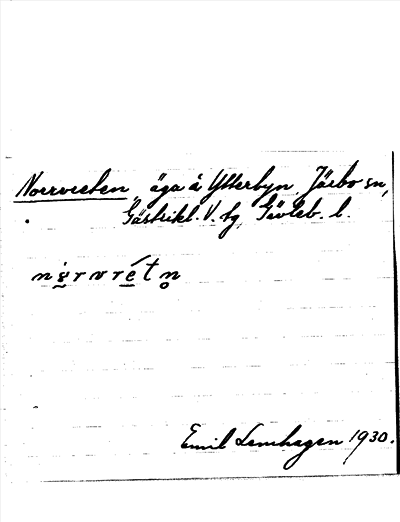 Norrvreten äga å Ytterbyn, Järbo sn,
Gästrikl. V. tg, Gävleb. l.
Emil Lenhagen 1930.